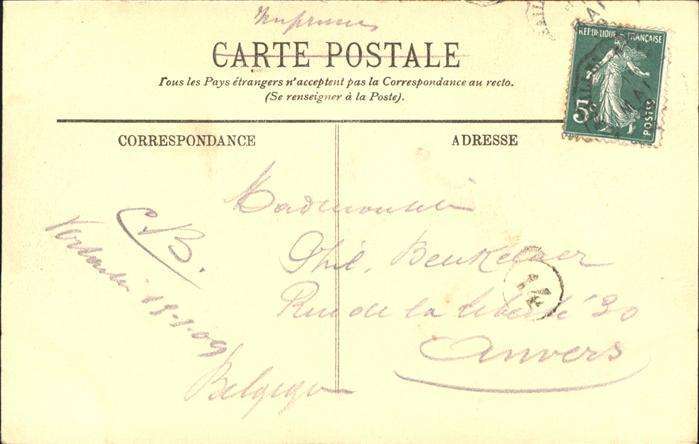 Imprimés
CARTE POSTALE
Tous les Pays étrangers n'acceptent pas la Correspondance au recto.
(Se renseigner à la Poste).
REPUBLIQUE FRANÇAISE
5c
POSTES
CORRESPONDANCE
ADRESSE
C.B.
Mademoiselle
Phil. Beukelaer
Rue de la liberté 30
Anvers
Belgique